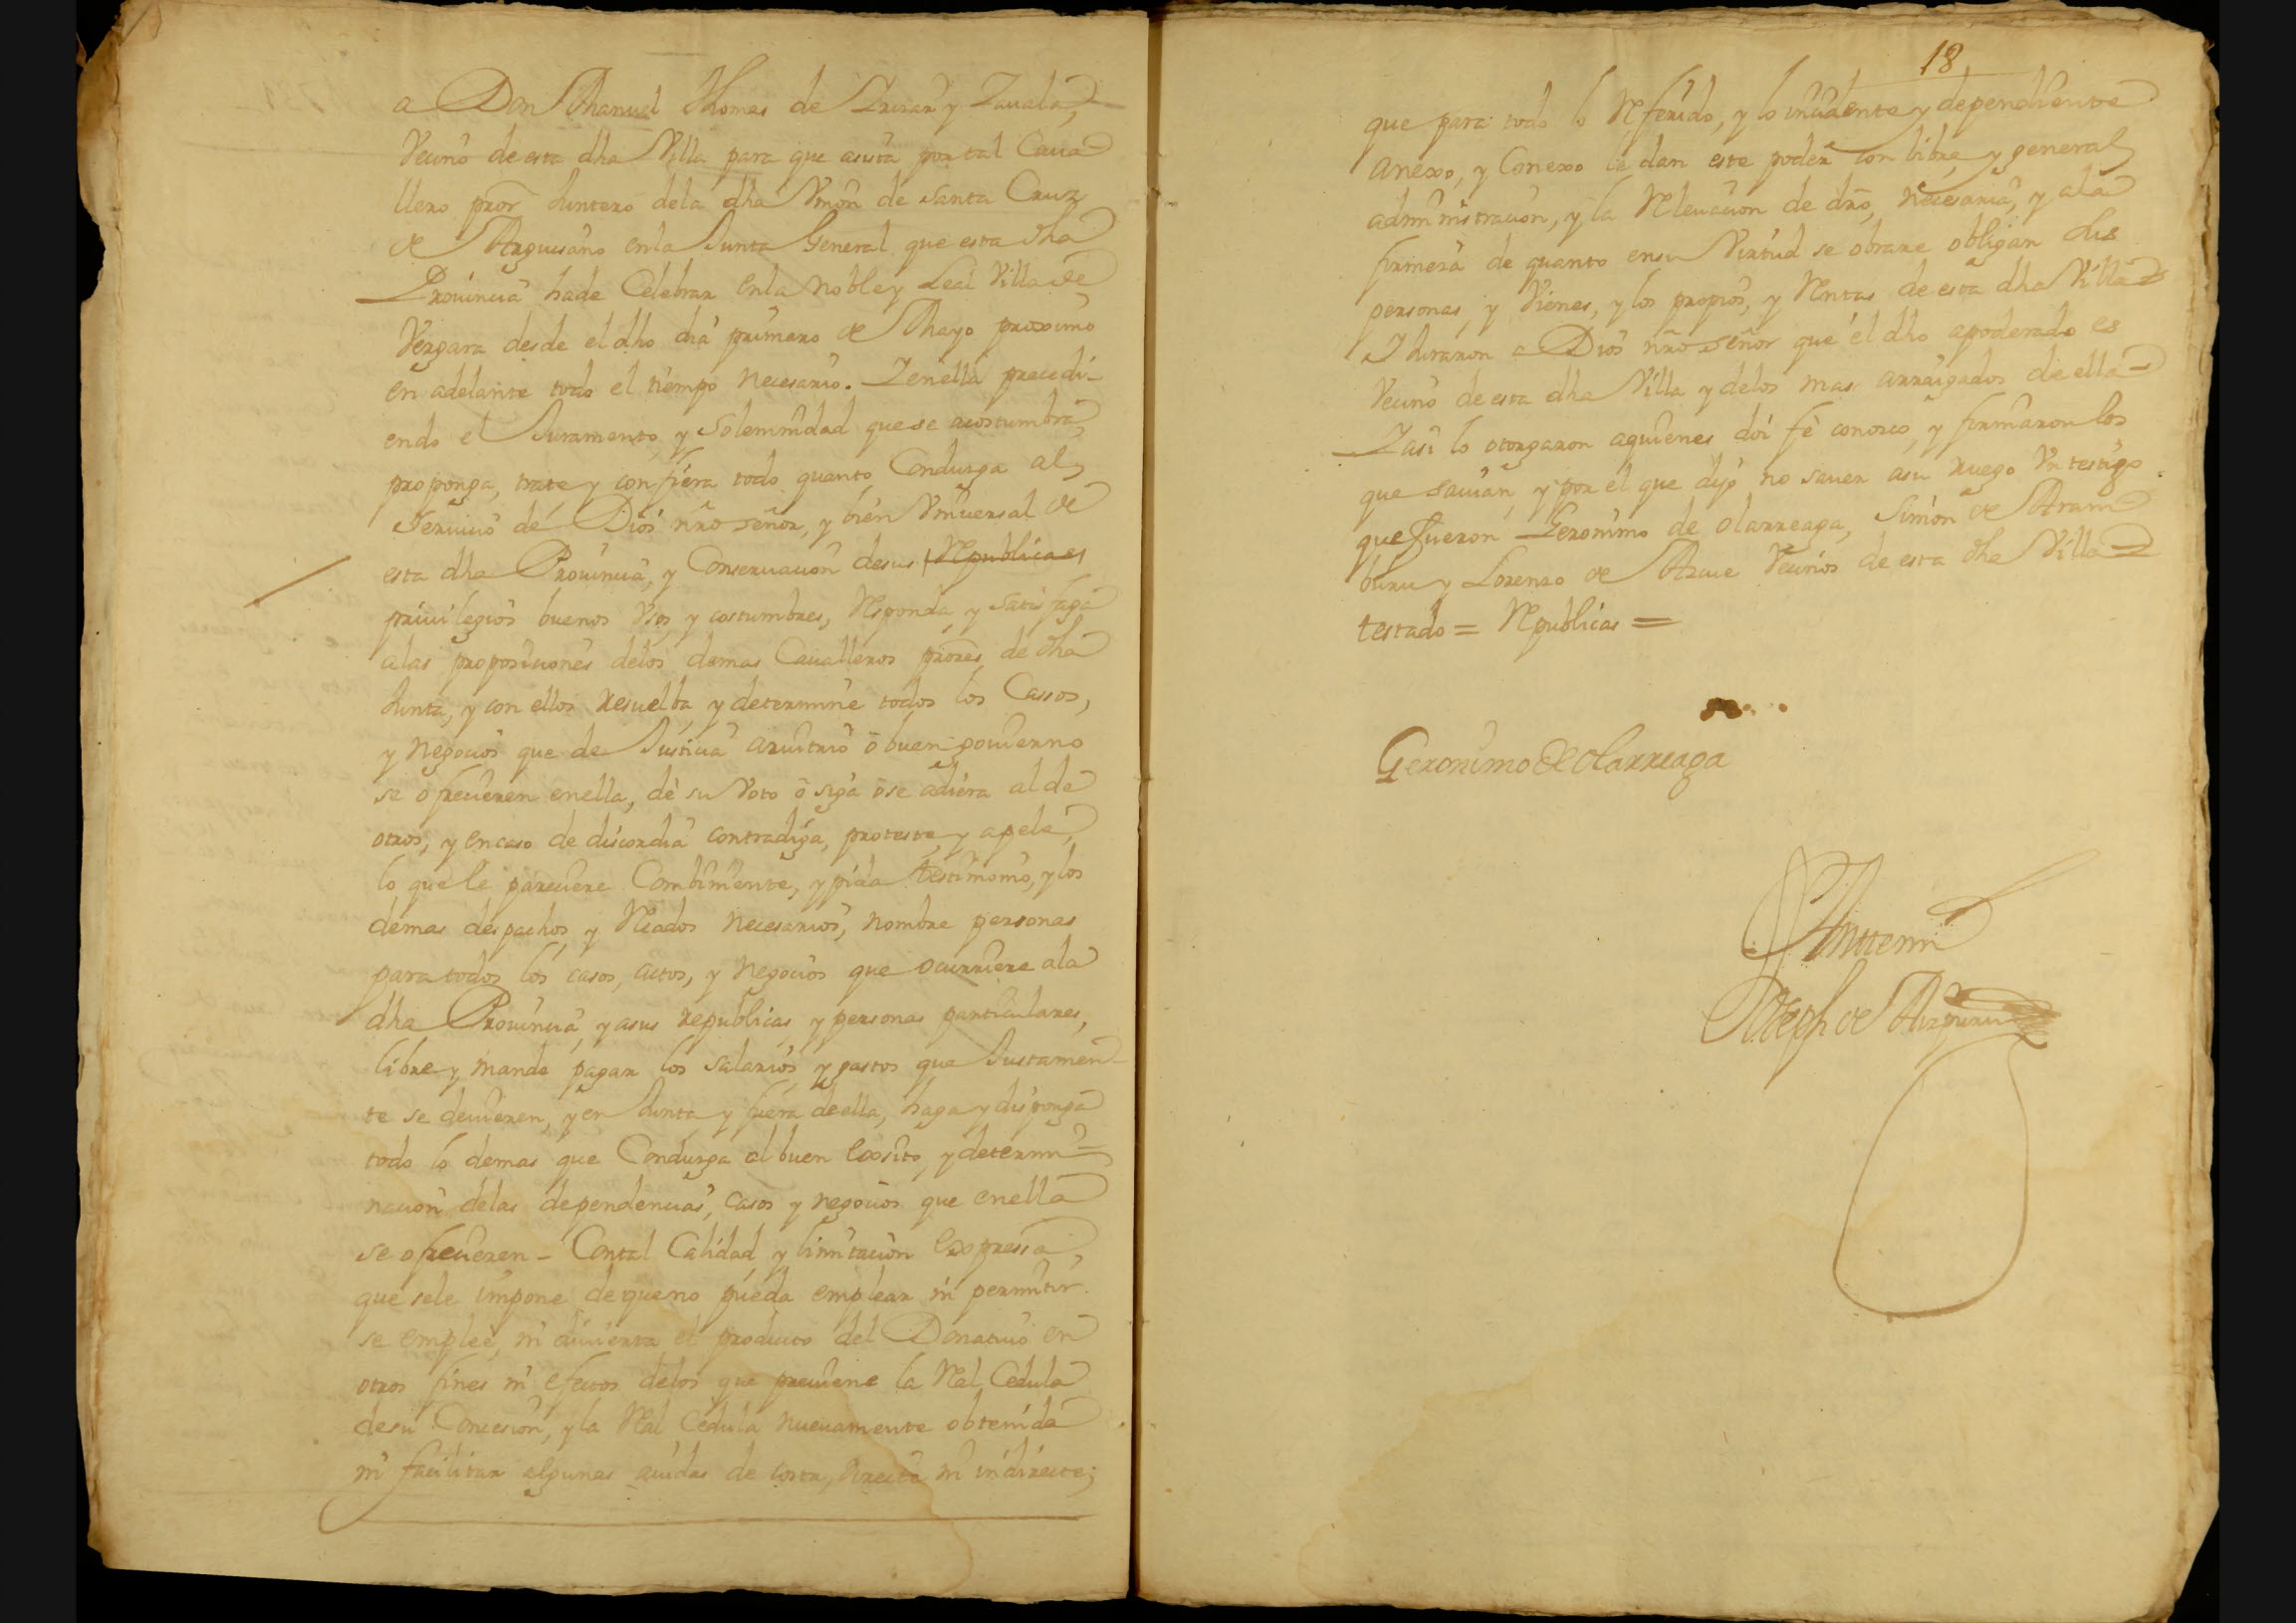 a Don Manuel Thomas de Yrizar y Zauala,
Vecino de esta dha Villa para que asista por tal Caua
llero pror Juntero dela dha Vnion de Santa Cruz
de Arguisano enla Junta General que esta dha
Prouincia hade Celebrar enla noble y Leal Villa de
Vergara desde el dho dia primero de Mayo proximo
en adelante todo el tiempo necesario. Y enella precedi-
endo el Juramento, y Solemnidad que se acostumbra,
proponga, trate y confiera todo quanto Conduzga al
Seruicio de Dios nro señor, y bien Vniuersal de
esta dha Prouincia, y Conseruacion desus Republicas
priuilegios buenos Vsos y costumbres, Responda, y Satisfaga
alas proposiciones delos demas Caualleros prores de dha
Junta, y con ellos resuelba y determine todos los Cassos,
y negocios que de Justicia aruitrio ô buen gouierno
se ofrecieren enella, dè su Voto ô siga ôse adiera alde
otros, y encaso de discordia contradiga, proteste, y apele,
lo que le pareciere Combiniente, y pida testimonio, y los
demas despachos y Rcados necesarios, nombre personas
para todos los casos, actos, y negocios que ocurriere ala
dha Prouincia, y asus republicas y personas particulares,
libre y mande pagar los salarios y gastos que Justamen-
te se deuieren, y en Junta y fuera deella, haga y disponga
todo lo demas que Conduzga al buen Exsito, y determi=
nacion delas dependencias, casos y negocios que enella
se ofrecieren - Contal Calidad, y limitacion Expressa,
que sele impone de queno pueda emplear ni permitir
se emplee, ni diuierta el producto del Donatiuo en
otros fines ni efectos delos que preuiene la Rel Cedula
desu Concesion, y la Ral Cedula nueuamente obtenida
ni facilitar algunas auidas de costa, directe ni indirecte;
18
que para todo lo Referido, y lo incidente y dependiente
anexo, y Conexo le dan este poder con libre, y general
administracion, y la Releuacion de dro, necesaria, y ala
firmeza de quanto ensu Virtud se obrare obligan sus
personas, y Vienes, y los propios, y Rentas de esta dha Villa
Y Juraron a Dios nro señor que el dho apoderado es
Vecino de esta dha Villa y delos mas arraigados de ella -
Y asi lo otorgaron aquienes doi fè conozco, y firmaron los
que sauian, y por el que dijo no sauer asu ruego Vn testigo
que fueron Geronimo de Olarreaga, Simon de Aram
buru y Lorenzo de Azcue Vecinos de esta dha Villa
testado = Republicas =
Geronimo de Olarreaga
Ante mi
Joseph de Aizpuru